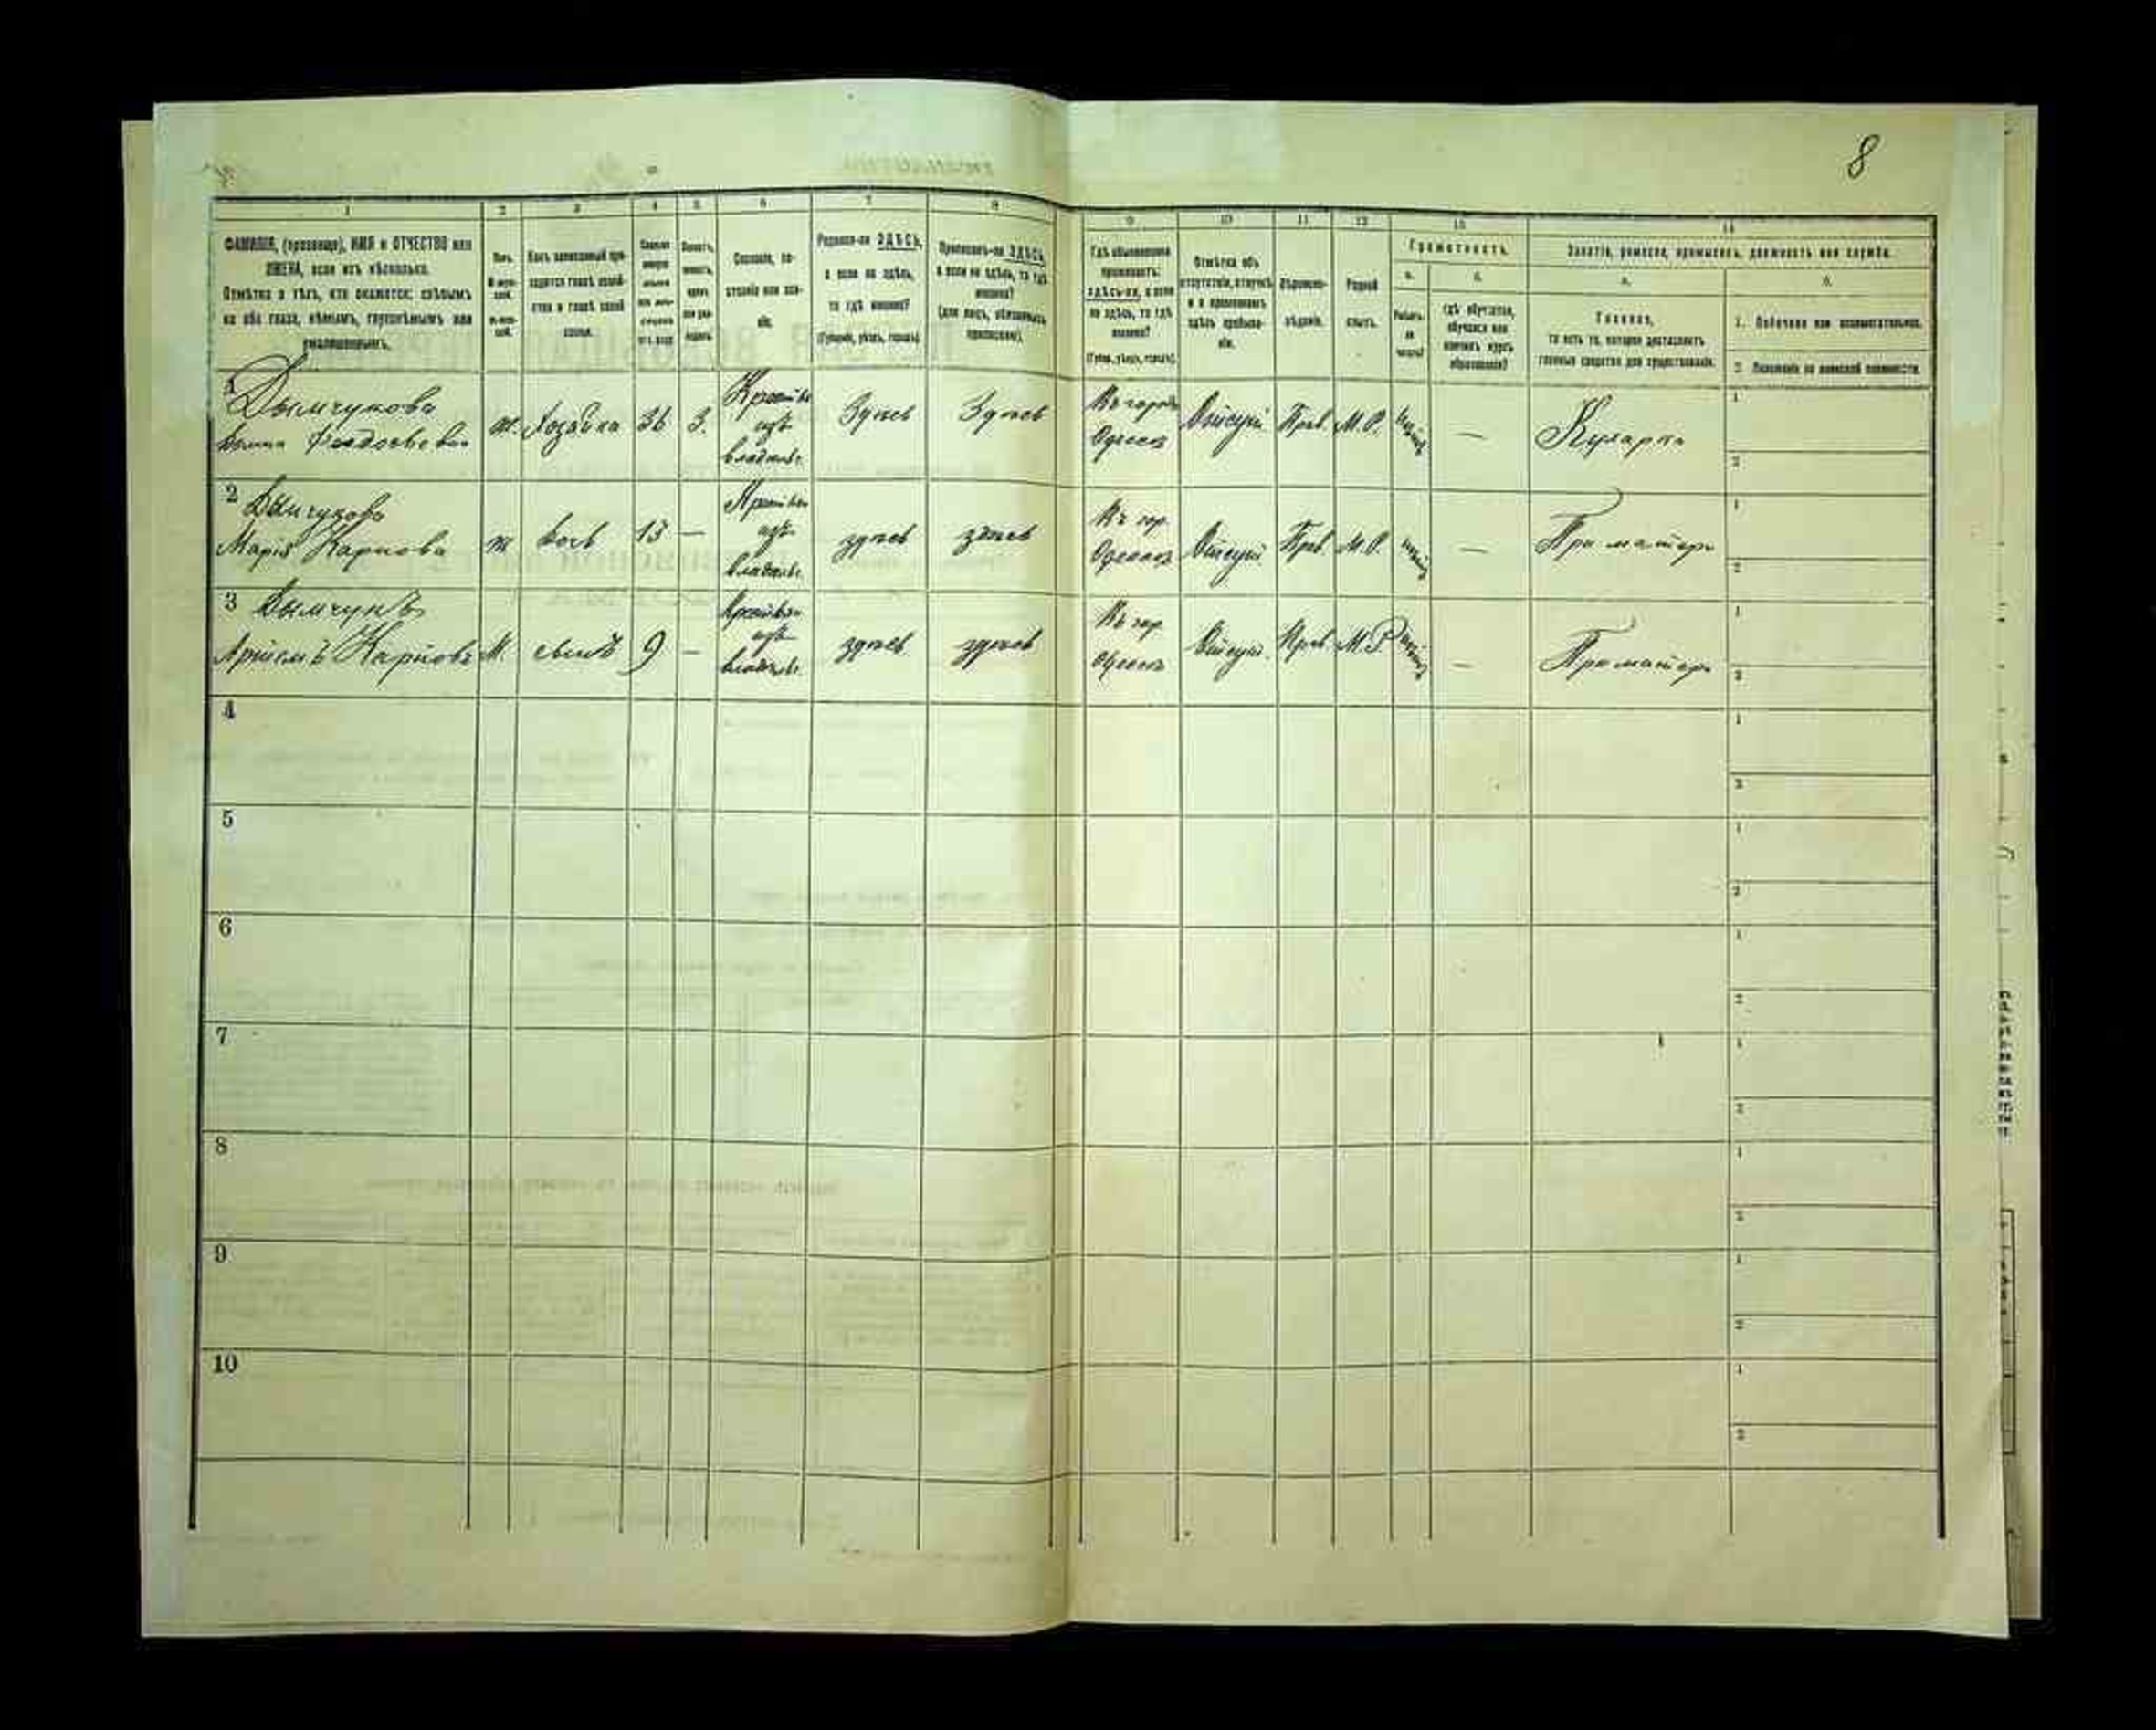 8
1 2 3 4 5 6 7 8 9 10 11 12 13 14
ФАМИЛІЯ, (прозвище), ИМЯ и ОТЧЕСТВО или
ИМЕНА, если ихъ нѣсколько.
Отмѣтка о тѣхъ, кто окажется: слѣпымъ
на оба глаза, нѣмымъ, глухонѣмымъ или
умалишеннымъ.
Полъ.
Какъ записанный при-
ходится главѣ хозяй-
ства и главѣ своей
семьи.
Сословіе, со-
стояніе или зва-
ніе.
Родился-ли ЗДѢСЬ,
а если не здѣсь,
то гдѣ именно?
(Губернія, уѣздъ, городъ).
Приписанъ-ли ЗДѢСЬ,
а если не здѣсь, то гдѣ
именно?
(для лицъ, обязанныхъ
припискою).
Гдѣ обыкновенно
проживаетъ:
здѣсь-ли, а если
не здѣсь, то гдѣ
именно?
(Губер., уѣздъ, городъ).
Отмѣтка объ
отсутствіи, отлучкѣ
и о временномъ
здѣсь пребыва-
ніи.
Вѣроиспо-
вѣданіе.
Родной
языкъ.
Грамотность.
а. б.
Гдѣ обучается,
обучался или
кончилъ курсъ
образованія?
Занятіе, ремесло, промыселъ, должность или служба.
а. б.
Главное,
то есть то, которое доставляетъ
главныя средства для существованія.
1. Побочное или вспомогательное.
2. Положеніе по воинской повинности.
1 Дымчукова
Ѳеодосьевна
ж. Хозяйка 36 З. Крестьян изъ владѣльч. Здѣсь Здѣсь Въ городѣ Одессѣ Отсут. Прав. М.Р. — Кухарка
1
2
2 Дымчукова
Марія Карпова ж дочь 13 — Крестьян изъ владѣльч. здѣсь здѣсь Въ гор. Одессѣ Отсут. Прав. М.Р. — При матери
1
2
3 Дымчукъ
Артемъ Карповъ М. сынъ 9 — Крестьян изъ владѣльч. здѣсь здѣсь Въ гор. Одессѣ Отсут. Прав. М.Р. — При матери
1
2
4
1
2
5
1
2
6
1
2
7
1
2
8
1
2
9
1
2
10
1
2